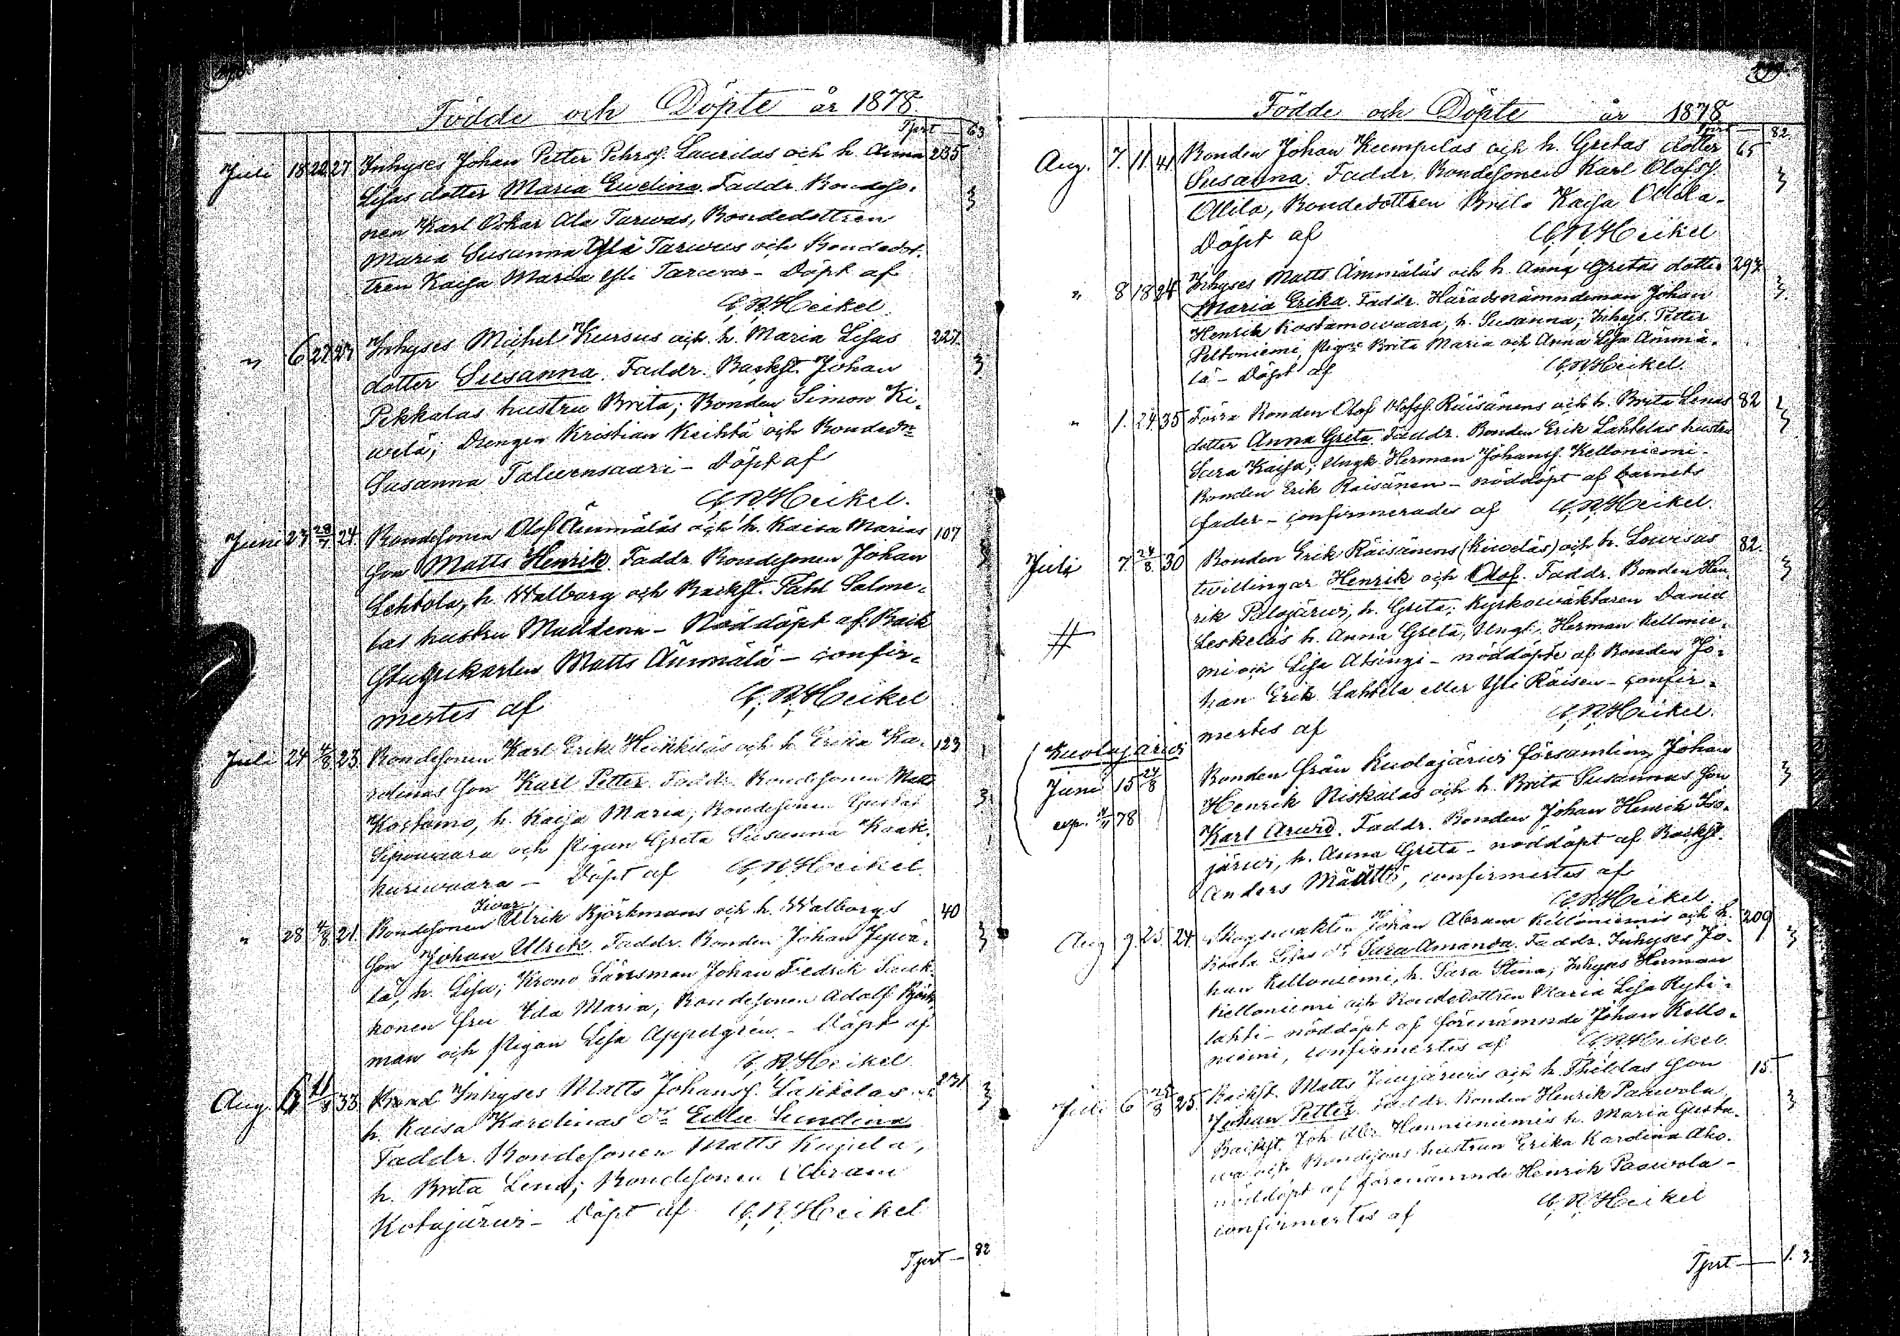 Födde och Döpte år 1878.
Tprt — 63
Juli 18 20 27 Inhyses Johan Petter Pehrsſ. Laurilas och h. Anna 235
Lisas dotter Maria Ewelina. Faddr. Bondeso- 3
nen Karl Oskar Ala Tarwas, Bondedottren
Maria Susanna Yla Tarwas och Bondedot-
tren Kaisa Maria Yli Tarwas – Döpt af
C, R, Heikel.
" 6 27 27 Inhyses Michel Kursus och h. Maria Lisas 227.
dotter Susanna. Faddr. Backst. Johan 3
Pekkalas hustru Brita; Bonden Simon Ki-
welä; Drengen Kristian och Bondedr
Susanna Taluensaari – Döpt af
C, R, Heikel.
Juni 27 28/7 24. Bondesonen Olof Ämmäläs och h. Kaisa Marias 107
son Matts Henrik. Faddr. Bondesonen Johan 3
Lehtola, h. Walborg och Backst. Salme-
las hustru Maddena – Nöddöpt af Back
stugukarlen Matts Ämmälä – confir-
mertes af C, R, Heikel
Juli 24 4/8 23. Bondesonen Karl Erik Heikkiläs och h. Erika Ka- 123
rolinas son Karl Petter. Faddr. Bondesonen Matts
Kostamo, h. Kaisa Maria; Bondesonen Gustaf 3
Sipowaara och pigan Greta Susanna Kaak-
kuriwaara – Döpt af C, R, Heikel.
" 28 4/8 21. Bondesonen Iwar Ulrik Björkmans och h. Walborgs 40
son Johan Ulrik. Faddr. Bonden Johan 3
lä, h. Lisa; Krono Länsman Johan Fredrik
konen fru Ida Maria; Bondesonen Adolf Björk-
man och pigan Lisa Appelgrén – Döpt af
C, R, Heikel.
Aug. 6 11/8 33. Inhyses Matts Johansſ. Lahtelas och 231
h. Kaisa Karolinas dr Eulu Sundina 3
Faddr. Bondesonen Matts
h. Brita Lena; Bondesonen Abram
Kotajärwi – Döpt af C, R, Heikel
Tprt — 82
Födde och Döpte år 1878
Tprt — 82.
Aug. 7. 11. 41. Bonden Johan Kumpulas och h. Gretas dotter 65
Susanna. Faddr. Bondesonen Karl Olofsſ. 3
Ollila, Bondedottren Brita Kaisa Ollila –
Döpt af C, R, Heikel
" 8 18 28 Inhyses Matts Ämmäläs och h. Anna Gretas dotter 297.
Maria Erika. Faddr. Häradsnämndeman Johan 3.
Henrik Kostamowaara, h. Susanna; Inhys. Petter
Peltoniemi, pigr Brita Maria och Anna Lisa Ämmä-
lä – Döpt af C, R, Heikel.
" 1. 24. 35 Förra Bonden Olof Olofsſ. Räisänens och h. Brita Lenas 82 1
dotter Anna Greta. Faddr. Bonden Erik Lahtelas hustru 3
Sara Kaisa; Ungk. Herman Johansſ. Kelloniemi –
Bonden Erik Räisänen – nöddöpt af barnets
fader – confirmerades af C, R, Heikel.
Juli 7. 24/8 30 Bonden Erik Räisänens (Kiweläs) och h. Lowisas 82.
twillingar Henrik och Olof. Faddr. Bonden Hen- 3
rik Pelojärwi, h. Greta; Kyrkowäktaren Daniel
# Leskeläs h. Anna Greta, Ungk. Herman Kellonie-
mi och Lisa Atsingi – nöddöpte af Bonden Jo-
han Erik Lahtela eller Yli Räisen – confir-
mertes af C, R, Heikel.
(Kuolajärwi
Juni 15 24/8 Bonden från Kuolajärwi församling Johan
Henrik Niskalas och h. Brita Susannas son 3
exp. 78 Karl Arwid. Faddr. Bonden Johan Henrik Iso-
järwi, h. Anna Greta – nöddöpt af Backst.
Anders Määttä, confirmertes af
C, R, Heikel.
Aug 9. 25. 24. Skogswakten Johan Abram Kelloniemis och h. 209
Lisas dr Sara Amanda. Faddr. Inhyses Jo- 3
han Kelloniemi, h. Sara Stina; Inhyses Herman
Kelloniemi och Bondedottren Maria Lisa Kyli-
lahti – nöddöpt af förenämnde Johan Kello-
niemi, confirmertes af C, R, Heikel.
Juli 6 25/8 25. Backst. Matts och h. Thildas son 15.
Johan Petter. Faddr. Bonden Henrik Paawola, 3
Backst. Joh. Abr. Hannuniemis h. Maria Gusta-
wa och Bondesons hustrun Erika Karolina Aho –
nöddöpt af förenämnde Henrik Paawola –
confirmertes af C, R, Heikel
Tprt — 1. 3.